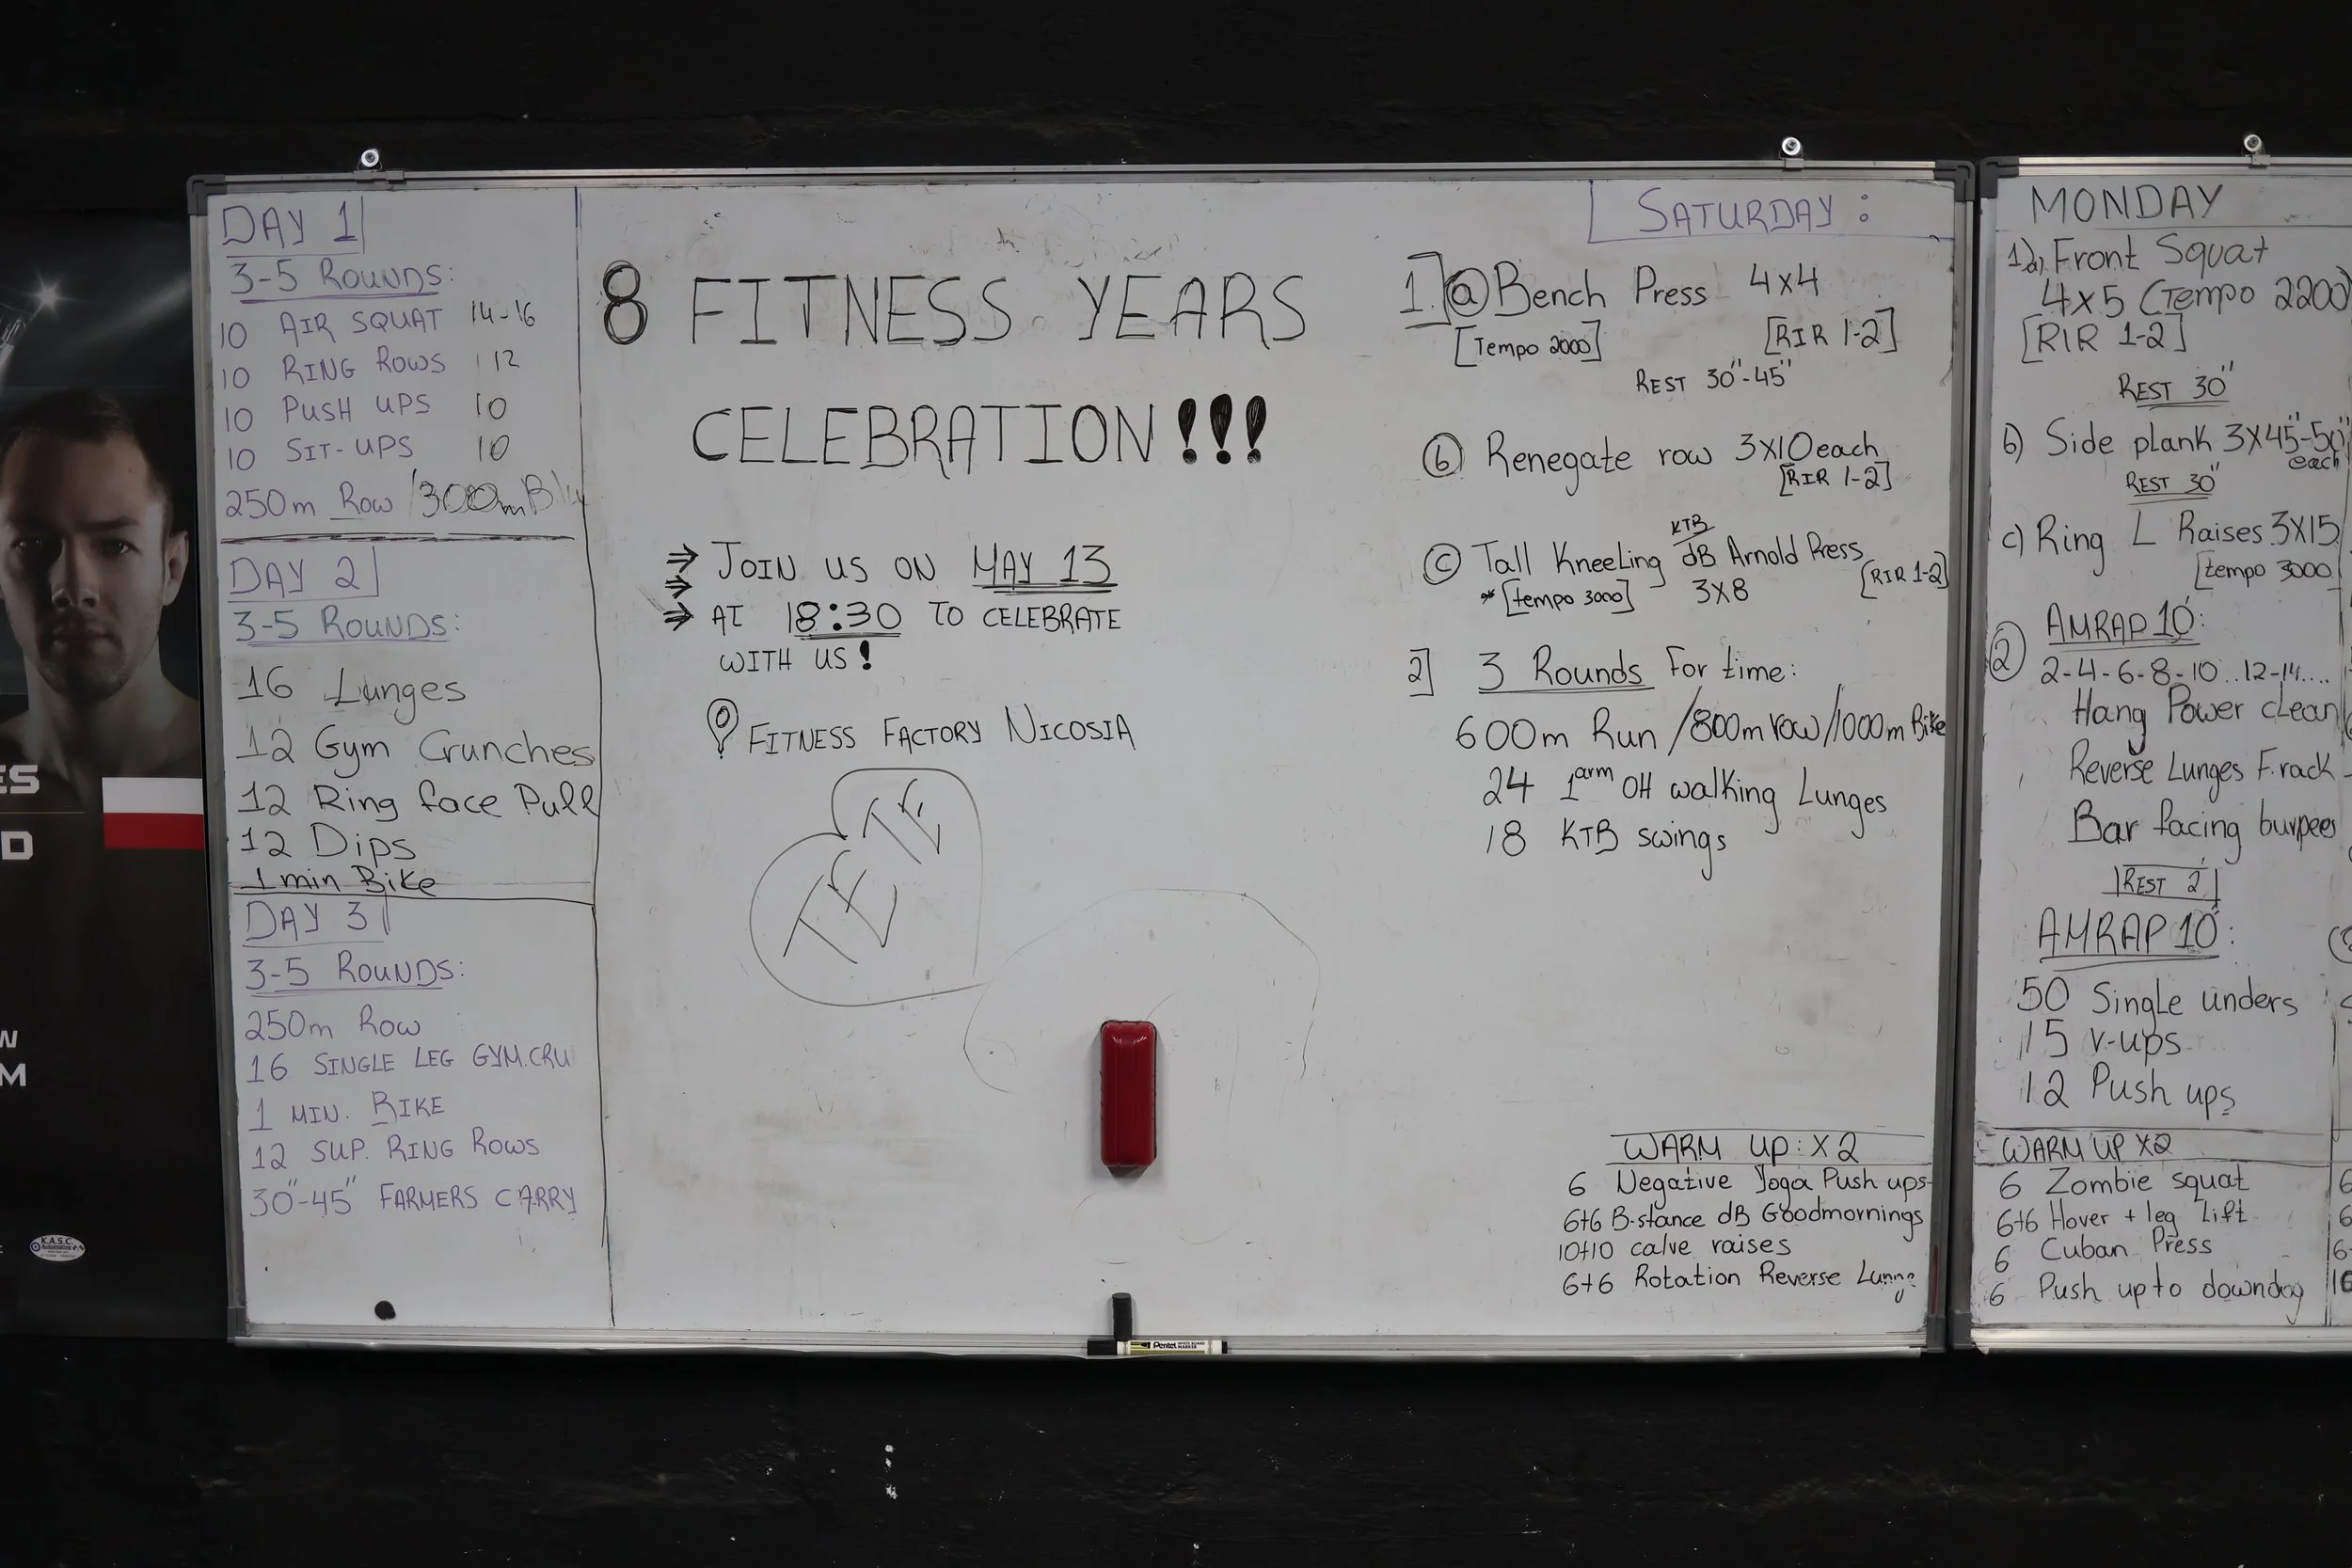 DAY 1
3-5 ROUNDS:
10 AIR SQUAT 14-16
10 RING ROWS 12
10 PUSH UPS 10
10 SIT-UPS 10
250m Row /300m
DAY 2
3-5 ROUNDS:
16 Lunges
12 Gym Crunches
12 Ring face Pull
12 Dips
1 min Bike
DAY 3
3-5 ROUNDS:
250m Row
16 SINGLE LEG GYM.CRU
1 MIN. BIKE
12 SUP. RING ROWS
30"-45" FARMERS CARRY
8 FITNESS YEARS
CELEBRATION!!!
⇒ JOIN US ON MAY 13
⇒ AT 18:30 TO CELEBRATE
WITH US!
FITNESS FACTORY NICOSIA
TETE
SATURDAY:
1.] a Bench Press 4x4
[Tempo 2000] [RIR 1-2]
REST 30"-45"
b Renegate row 3x10 each
[RIR 1-2]
KTB
c Tall Kneeling dB Arnold Press
*[tempo 3000] 3x8 [RIR 1-2]
2] 3 Rounds For time:
600m Run /800m row/1000m Bike
24 1arm OH walking Lunges
18 KTB swings
WARM UP: X2
6 Negative Yoga Push ups
6+6 B-stance dB Goodmornings
10+10 calve raises
6+6 Rotation Reverse
MONDAY
1)a) Front Squat
4x5 (Tempo 2200)
[RIR 1-2]
REST 30"
b) Side plank 3x45"-50"
each
REST 30"
c) Ring L Raises 3X15
[tempo 3000
2 AMRAP 10':
2-4-6-8-10..12-14....
Hang Power clean
Reverse Lunges F.rack
Bar facing burpees
REST 2'
AMRAP 10':
50 Single unders
15 V-ups
12 Push ups
WARM UP X2
6 Zombie squat
6+6 Hover + leg Lift
6 Cuban Press
6 Push up to downdog
ES
D
W
M
K.A.S.C.
Pentel